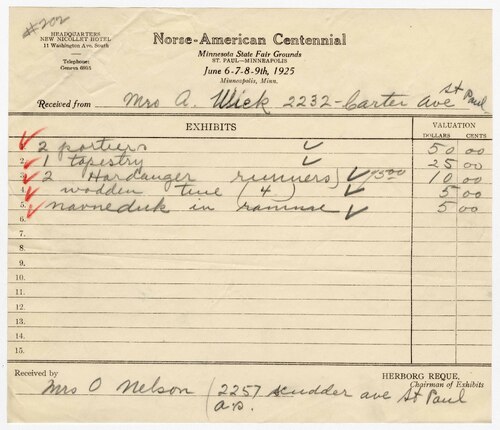 #202
HEADQUARTERS
NEW NICOLLET HOTEL
11 Washington Ave. South
Telephone:
Geneva 6895
Norse-American Centennial
Minnesota State Fair Grounds
ST. PAUL—MINNEAPOLIS
June 6-7-8-9th, 1925
Minneapolis, Minn.
Received from Mrs A. Wick 2232-Carter Ave St Paul
EXHIBITS
VALUATION
DOLLARS CENTS
2 portiers 50 00
2. 1 tapestry 25 00
3. 2 Hardanger runners 95.00 10 00
4. wooden tine (4) 5 00
5. navneduk in ramme 5 00
6.
7.
8.
9.
10.
11.
12.
13.
14.
15.
Received by
HERBORG REQUE,
Chairman of Exhibits
Mrs O Nelson (2257 Scudder ave St Paul
a.p.